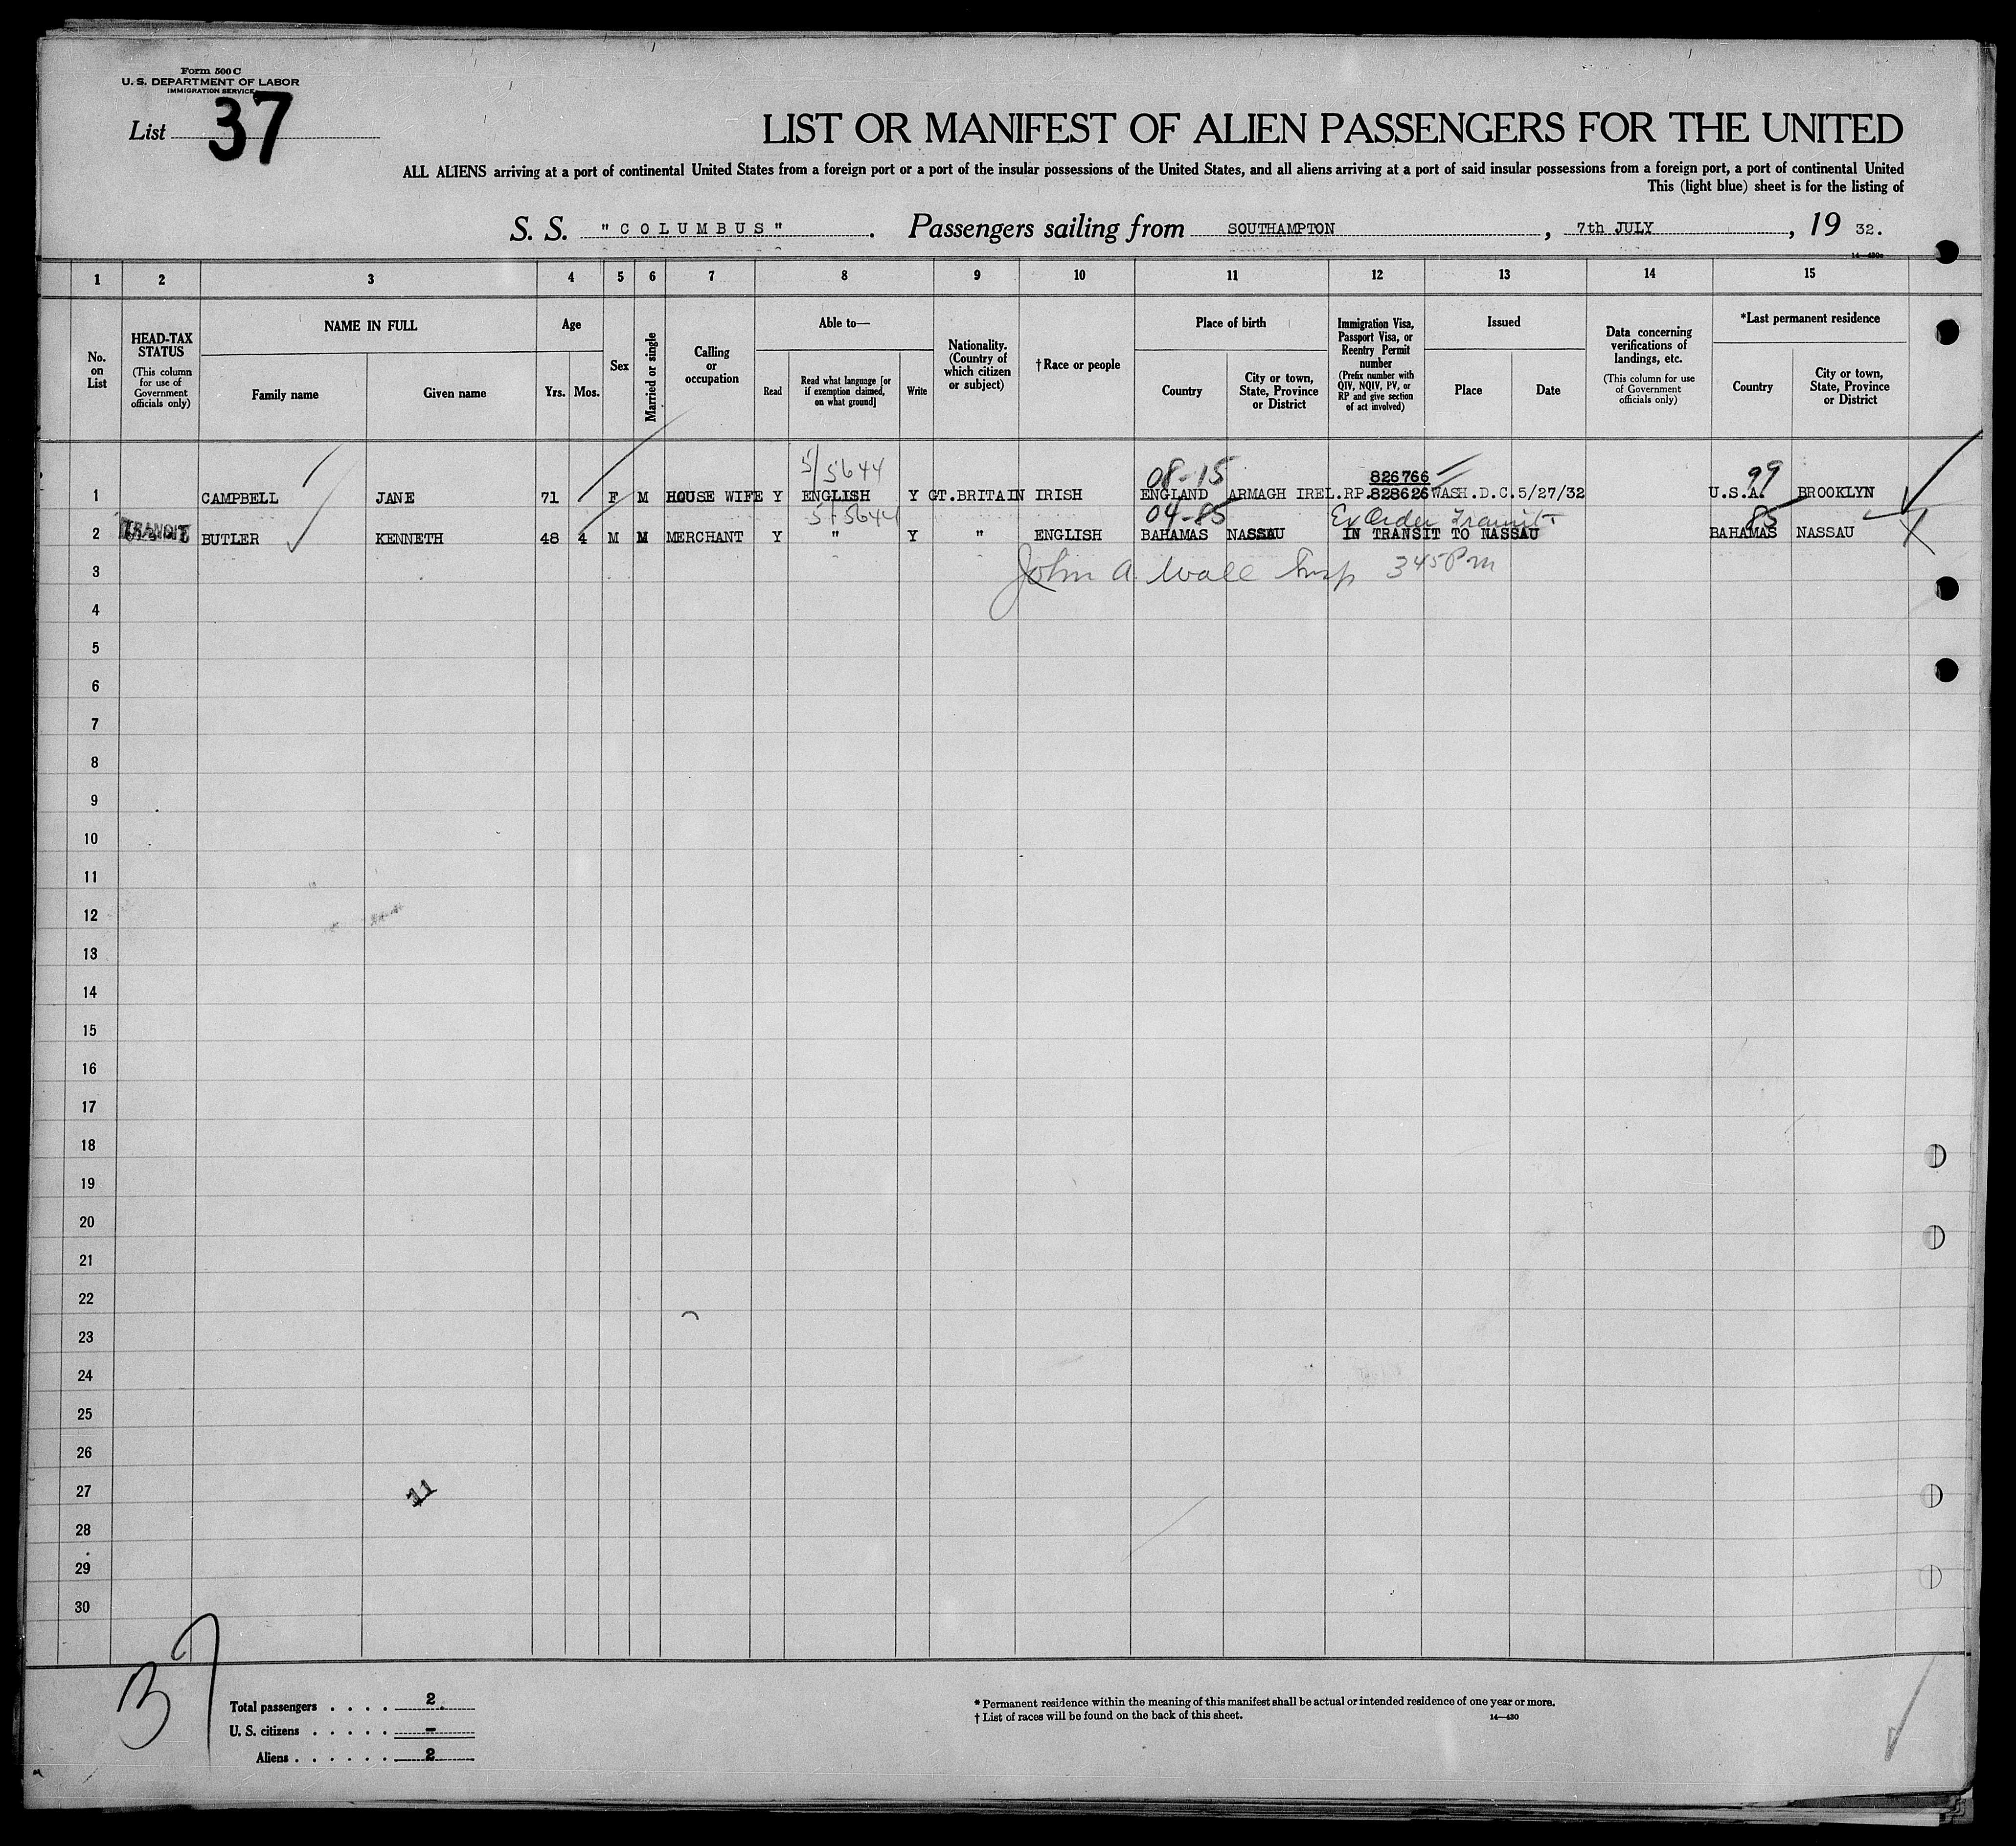 Form 500 C
U. S. DEPARTMENT OF LABOR
IMMIGRATION SERVICE
List 37
LIST OR MANIFEST OF ALIEN PASSENGERS FOR THE UNITED
ALL ALIENS arriving at a port of continental United States from a foreign port or a port of the insular possessions of the United States, and all aliens arriving at a port of said insular possessions from a foreign port, a port of continental United
This (light blue) sheet is for the listing of
S. S. "COLUMBUS". Passengers sailing from SOUTHAMPTON, 7th JULY, 19 32.
14—430a
1 2 3 4 5 6 7 8 9 10 11 12 13 14 15
No. on List
HEAD-TAX STATUS (This column for use of Government officials only)
NAME IN FULL
Family name
Given name
Age
Yrs. Mos.
Sex
Married or single
Calling or occupation
Able to—
Read
Read what language [or if exemption claimed, on what ground]
Write
Nationality. (Country of which citizen or subject)
† Race or people
Place of birth
Country
City or town, State, Province or District
Immigration Visa, Passport Visa, or Reentry Permit number (Prefix number with QIV, NQIV, PV, or RP and give section of act involved)
Issued
Place
Date
Data concerning verifications of landings, etc. (This column for use of Government officials only)
*Last permanent residence
Country
City or town, State, Province or District
5/5644 08-15 826766 99
1 CAMPBELL JANE 71 F M HOUSE WIFE Y ENGLISH Y GT.BRITAIN IRISH ENGLAND ARMAGH IREL.RP.828626 WASH.D.C.5/27/32 U.S.A. BROOKLYN
5+5644 04-85 Ex Order Transit 85
2 TRANSIT BUTLER KENNETH 48 4 M M MERCHANT Y " Y " ENGLISH BAHAMAS NASSAU IN TRANSIT TO NASSAU BAHAMAS NASSAU X
3 John A. Wall Insp 345 Pm
4
5
6
7
8
9
10
11
12
13
14
15
16
17
18
19
20
21
22
23
24
25
26
27
11
28
29
30
37
Total passengers . . . . 2.
U. S. citizens . . . . . –
Aliens . . . . . . 2
* Permanent residence within the meaning of this manifest shall be actual or intended residence of one year or more.
† List of races will be found on the back of this sheet.
14—430